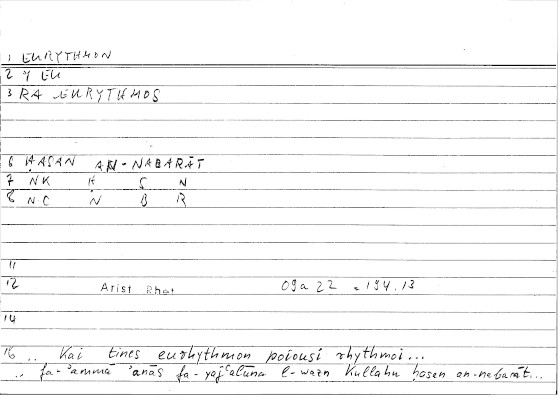 1 EURYTHMON
2 γ EU
3 RA EURYTHMOS
6 ḤASAN AN-NABARĀT
7 NK Ḥ S N
8 NC N B R
11
12 Arist Rhet 09a 22 = 194.13
14
16 .. Kai tines eurhythmon poiousi rhythmoi...
.. fa-'ammā 'anās fa-yaj'alūna l-wazn Kullahu ḥasen an-nabarāt...